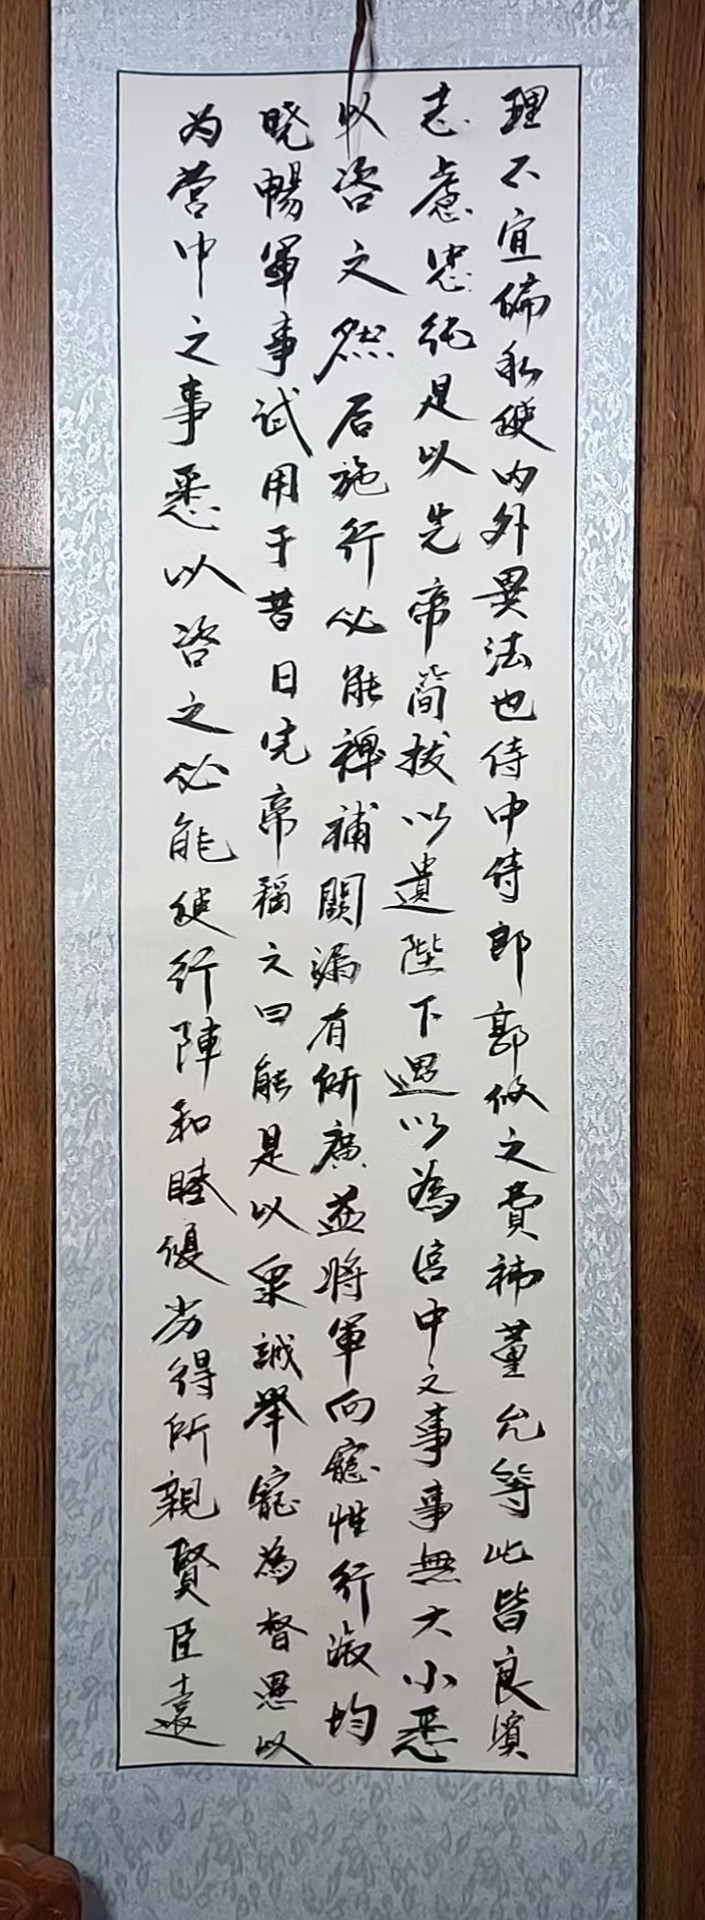 理不宜偏私使内外異法也侍中侍郎郭攸之費祎董允等此皆良實
志慮忠純是以先帝簡拔以遺陛下愚以為宫中之事事無大小悉
以咨之然后施行必能裨補闕漏有所廣益将軍向寵性行淑均
曉暢軍事试用于昔日先帝稱之曰能是以衆議举寵為督愚以
为营中之事悉以咨之必能使行陣和睦優劣得所親賢臣遠